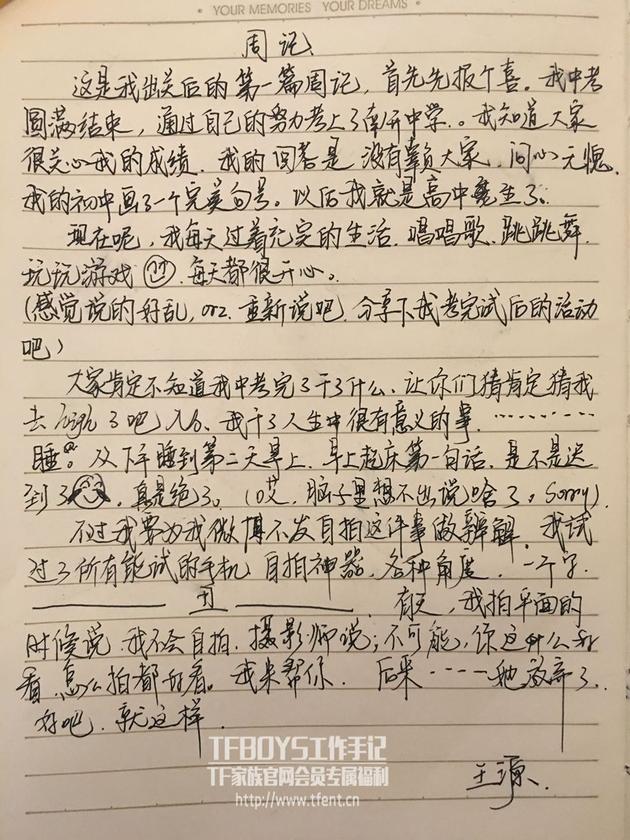 YOUR MEMORIES YOUR DREAMS
周记
这是我出关后的第一篇周记，首先先报个喜。我中考
圆满结束，通过自己的努力考上了南开中学。。我知道大家
很关心我的成绩．我的回答是 没有辜负大家．问心无愧．
我的初中画了一个完美句号。以后我就是高中魔生了。
现在呢，我每天过着充实的生活．唱唱歌、跳跳舞．
玩玩游戏 每天都很开心。
(感觉说的好乱，orz．重新说吧．分享下我考完试后的活动
吧)
大家肯定不知道我中考完了干了什么．让你们猜肯定猜我
去 high 了吧 No．我干了人生中很有意义的事．…………
睡。从下午睡到第二天早上．早上起床第一句话．是不是迟
到了 ．真是绝了。(哎．脑子里想不出说啥了。Sorry)
不过我要为我微博不发自拍这件事做辨解．我试
过了所有能试的手机 自拍神器．各种角度．一个字．
—— 丑 —— ．有天，我拍平面的
时候说 我不会自拍．摄影师说；不可能，你这什么
看 怎么拍都好看。我来帮你． 后来 ---- 她放弃了．
好吧．就这样．
王源．
TFBOYS工作手记
TF家族官网会员专属福利
http://www.tfent.cn